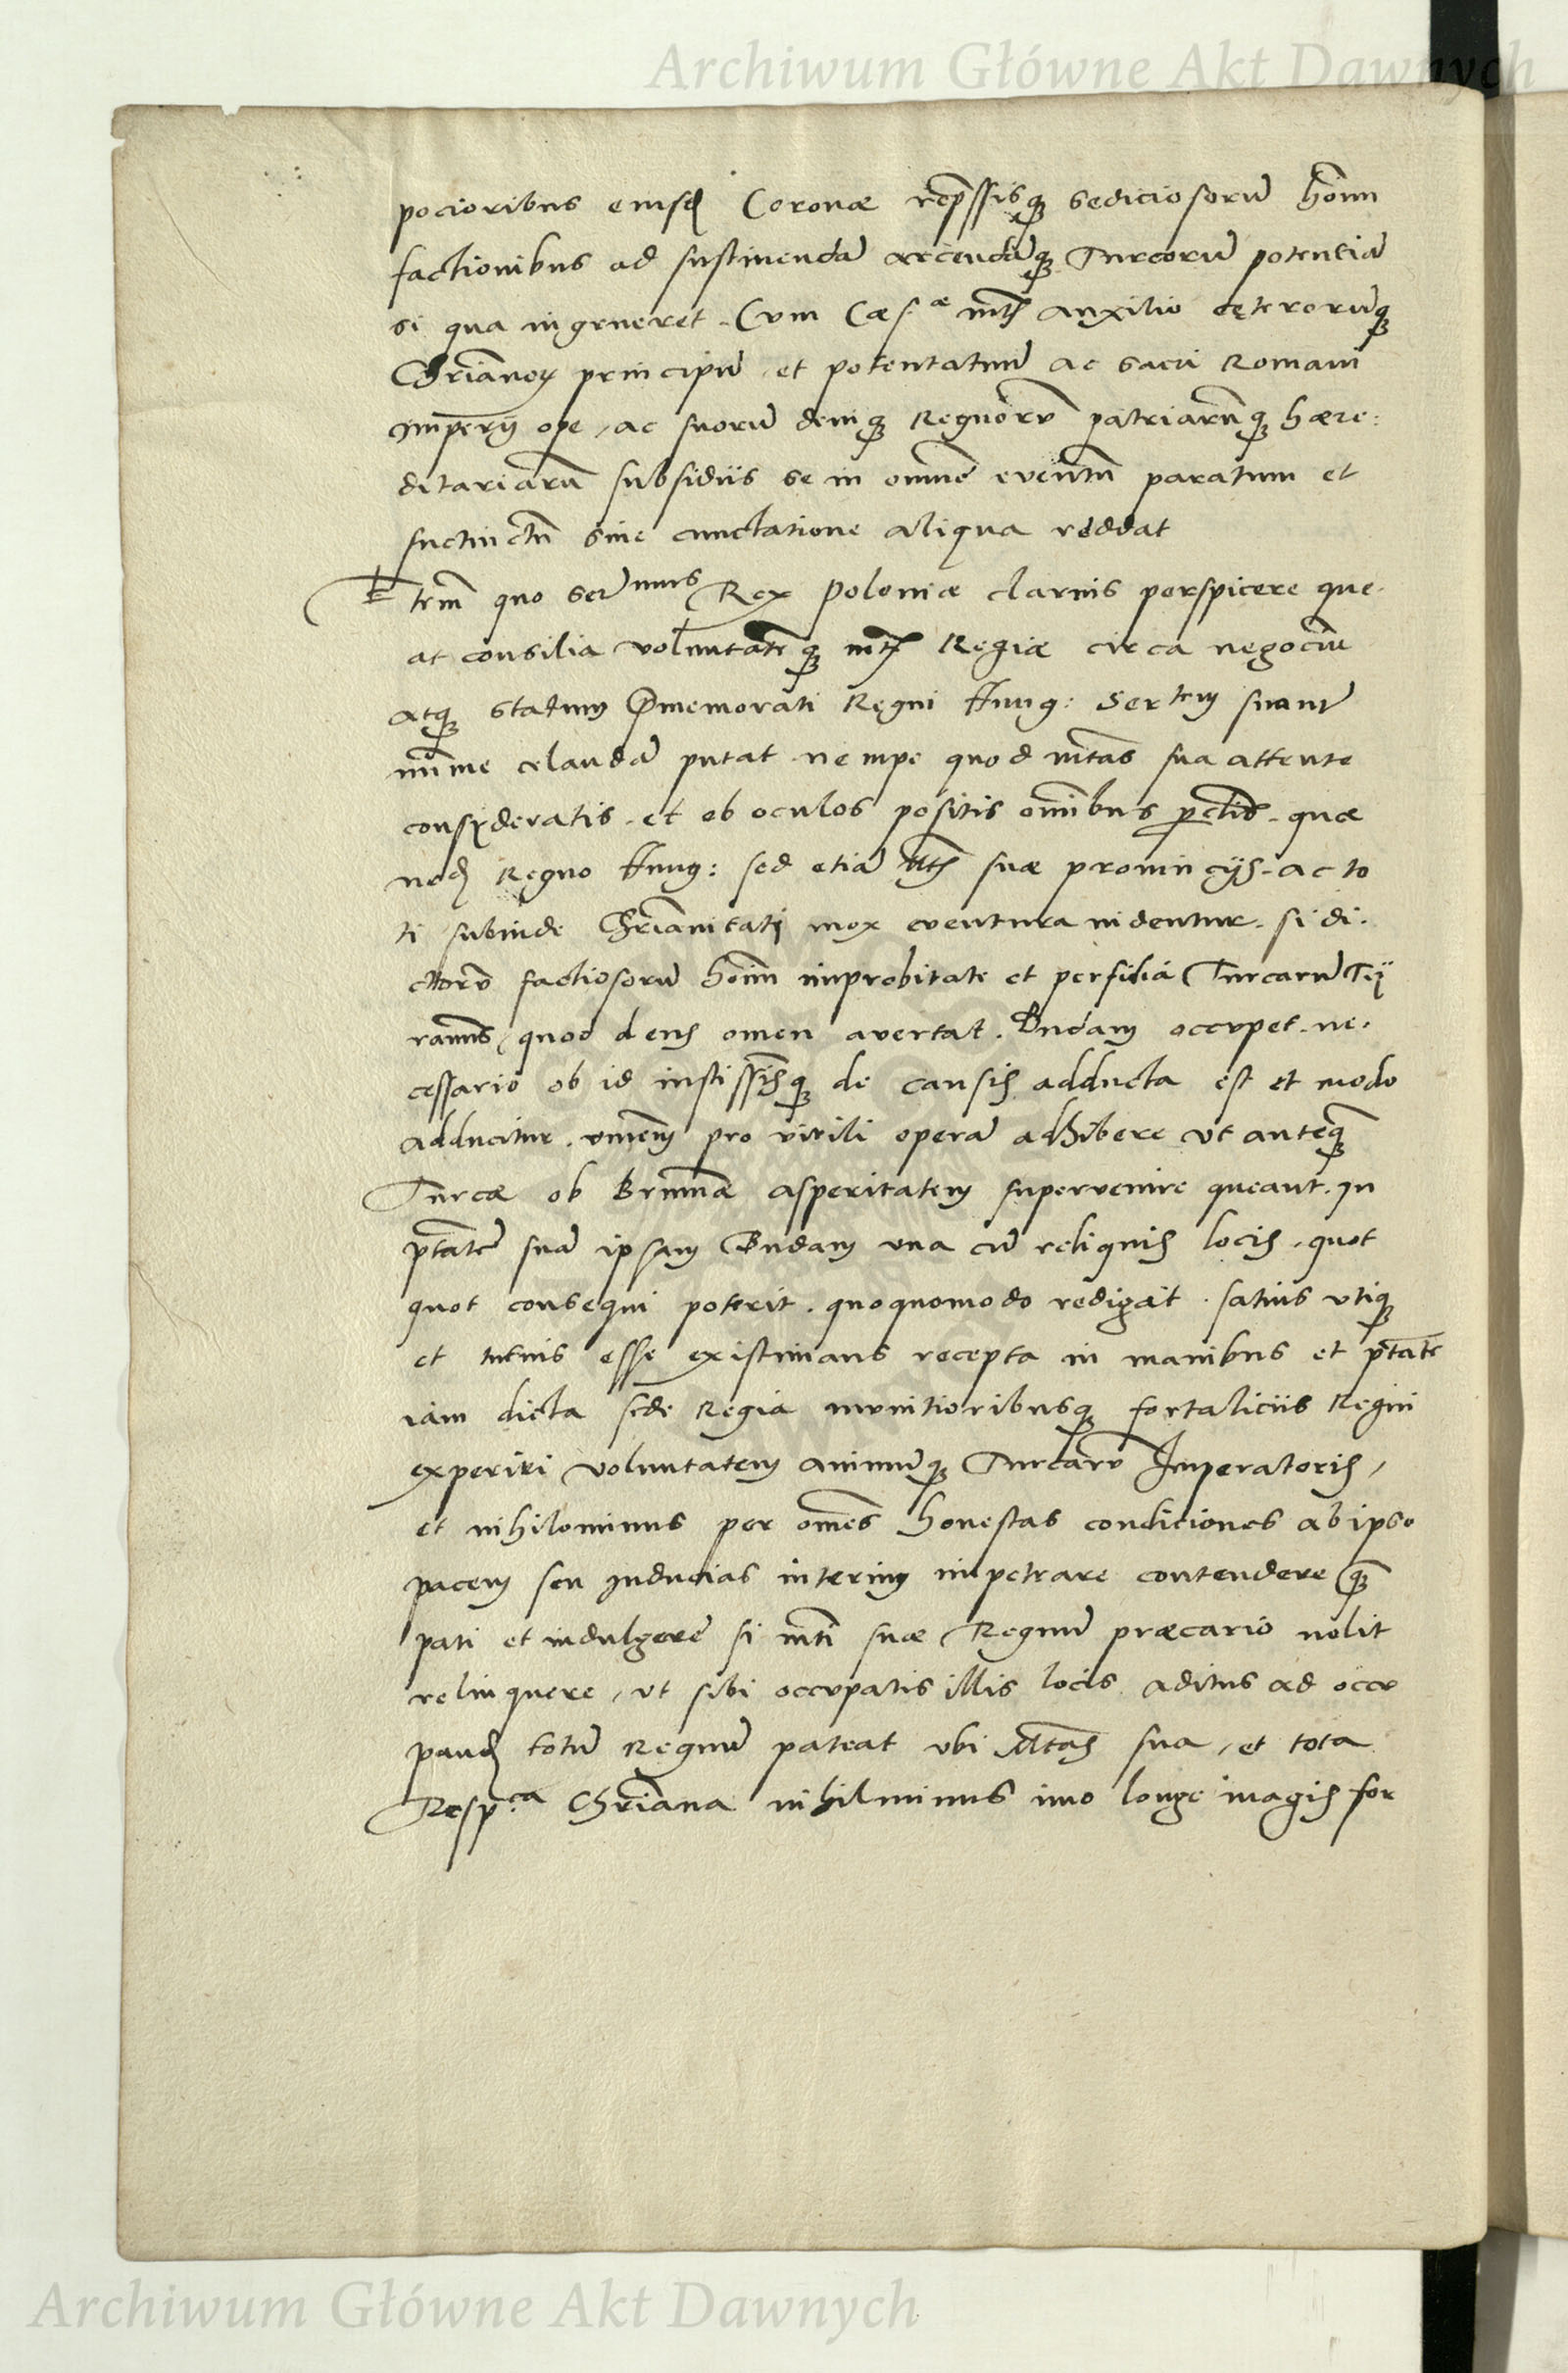 Archiwum Główne Akt Dawnych
pocioribus eiusđ Coronæ rep̄ssisq̢ sediciosorū hom̄
factionibus ad sustinendā arcendāq̢ Turcorū potentiā
si qua ingrueret. Cum Cæs.æ mtis auxilio cęterorūq̢
Chrīanoꝝ principū et potentatuū ac sacri Romani
Imperij ope, ac suorū deniq̢ Regnorū patriarūq̢ hære:
ditariarū subsidiis se in omnē eventū paratum et
succinctū sine cunctatione aliqua reddat
Item quo Sermus Rex Poloniæ clarius perspicere que.
at consilia voluntatēq̢ mtis Regiæ circa negociū
atq̢ statum p̄memorati Regni Hung: Sertem suam
mīme celandā putat nempe quod mtas sua attente
consyderatis et ob oculos positis omībus p̱clis quæ
nedū Regno Hung: sed etiā Mtis suæ provincijs ac to
ti subinde Chrīanitati mox eventura videntur. si di.
ctorū factiosorū hoīm improbitate et perfidia Turcarū Tỹ
rannus, quod deus omen avertat. Budam occupet. ne.
cessario ob id iustissīsq̢ de causis adducta est et modo
adducitur. om̄em pro virili operā adhibere ut anteq̢
Turcæ ob Brumæ asperitatem supervenire queant. In
p̄tatē suā ipsam Budam una cū reliquis locis, quot
quot consequi poterit. quoquomodo redigat. satius utiq̢
et tutius esse existimans recepta in manibus et p̄tate
iam dicta sede Regia munitioribusq̢ fortaliciis Regni
experiri voluntatem animūq̢ Turcarū Imperatoris,
et nihilominus per om̄es honestas condiciones ab ipso
pacem seu inducias interim impetrare contendere q̄
pati et indulgere si mti suæ Regnū præcario nolit
relinquere, ut sibi occupatis illis locis aditus ad occu
pandū totū Regnū pateat ubi Mtas sua, et tota
Resp.ca Chrīana nihilminus imo longe magis for
Archiwum Główne Akt Dawnych